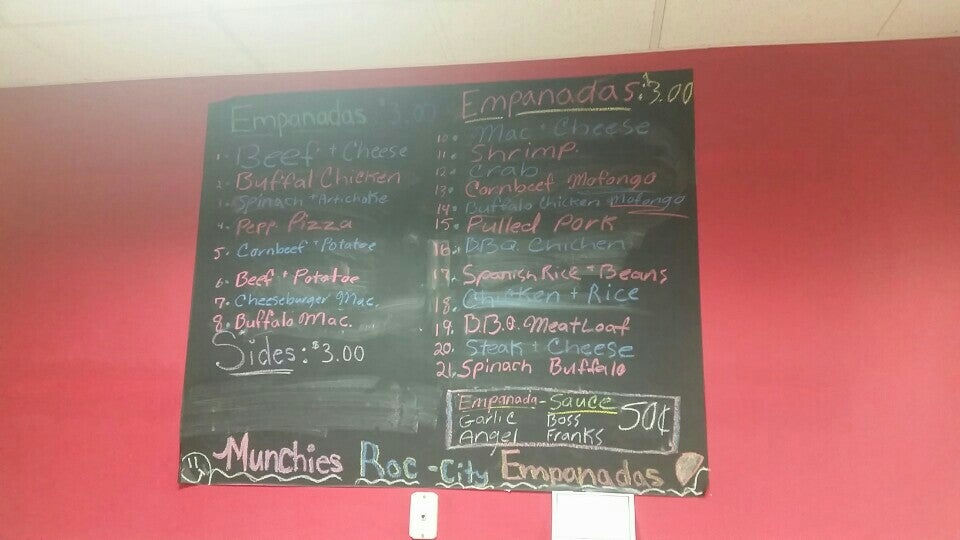 Empanadas $3.00
1. Beef + Cheese
2. Buffal Chicken
3. Spinach + Artichoke
4. Pepp. Pizza
5. Cornbeef + Potatoe
6. Beef + Potatoe
7. Cheeseburger Mac.
8. Buffalo Mac.
Sides: $3.00
Empanadas: $3.00
10. Mac + Cheese
11. Shrimp.
12. Crab
13. Cornbeef Mofongo
14. Buffalo Chicken Mofongo
15. Pulled Pork
16. B.B.Q. Chichen
17. Spanish Rice + Beans
18. Chicken + Rice
19. B.B.Q. Meat Loaf
20. Steak + Cheese
21. Spinach Buffalo
Empanada - Sauce 50¢
Garlic Boss
Angel Franks
11 Munchies Roc-City Empanadas